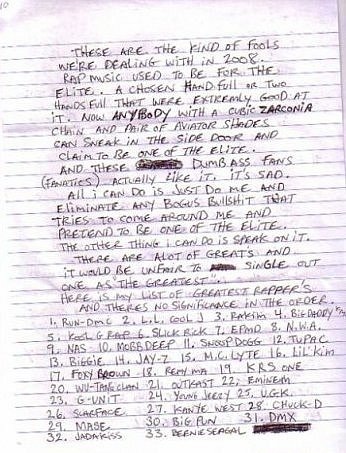 THESE ARE THE KIND OF FOOLS
WE'RE DEALING WITH IN 2008.
RAP MUSIC USED TO BE FOR THE
ELITE. A CHOSEN HANDFULL OR TWO
HANDSFULL THAT WERE EXTREMLY GOOD AT
IT. NOW ANYBODY WITH A CUBIC ZARCONIA
CHAIN AND PAIR OF AVIATOR SHADES
CAN SNEAK IN THE SIDE DOOR AND
CLAIM TO BE ONE OF THE ELITE.
AND THESE DUMBASS FANS
(FANATICS) ACTUALLY LIKE IT. IT'S SAD.
ALL i CAN DO IS JUST DO ME AND
ELIMINATE ANY BOGUS BULLSHIT THAT
TRIES TO COME AROUND ME AND
PRETEND TO BE ONE OF THE ELITE.
THE OTHER THING i CAN DO IS SPEAK ON IT.
THERE ARE ALOT OF GREATS AND
IT WOULD BE UNFAIR TO SINGLE OUT
ONE AS THE GREATEST.
HERE IS MY LIST OF GREATEST RAPPER'S
AND THERES NO SIGNIFICANCE IN THE ORDER.
1. RUN-DMC 2. L.L. COOL J 3. RAKIM 4. BIG DADDY KANE
5. KOOL G RAP 6. SLICK RICK 7. EPMD 8. N.W.A.
9. NAS 10. MOBB DEEP 11. SNOOP DOGG 12. TUPAC
13. BIGGIE 14. JAY-Z 15. M.C. LYTE 16. LIL' KIM
17. FOXY BROWN 18. REMY MA 19. KRS ONE
20. WU-TANG CLAN 21. OUTKAST 22. EMINEM
23. G-UNIT 24. YOUNG JEEZY 25. U.G.K.
26. SCARFACE 27. KANYE WEST 28. CHUCK-D
29. MASE 30. BIG PUN 31. DMX
32. JADAKISS 33. BEENIE SEAGAL